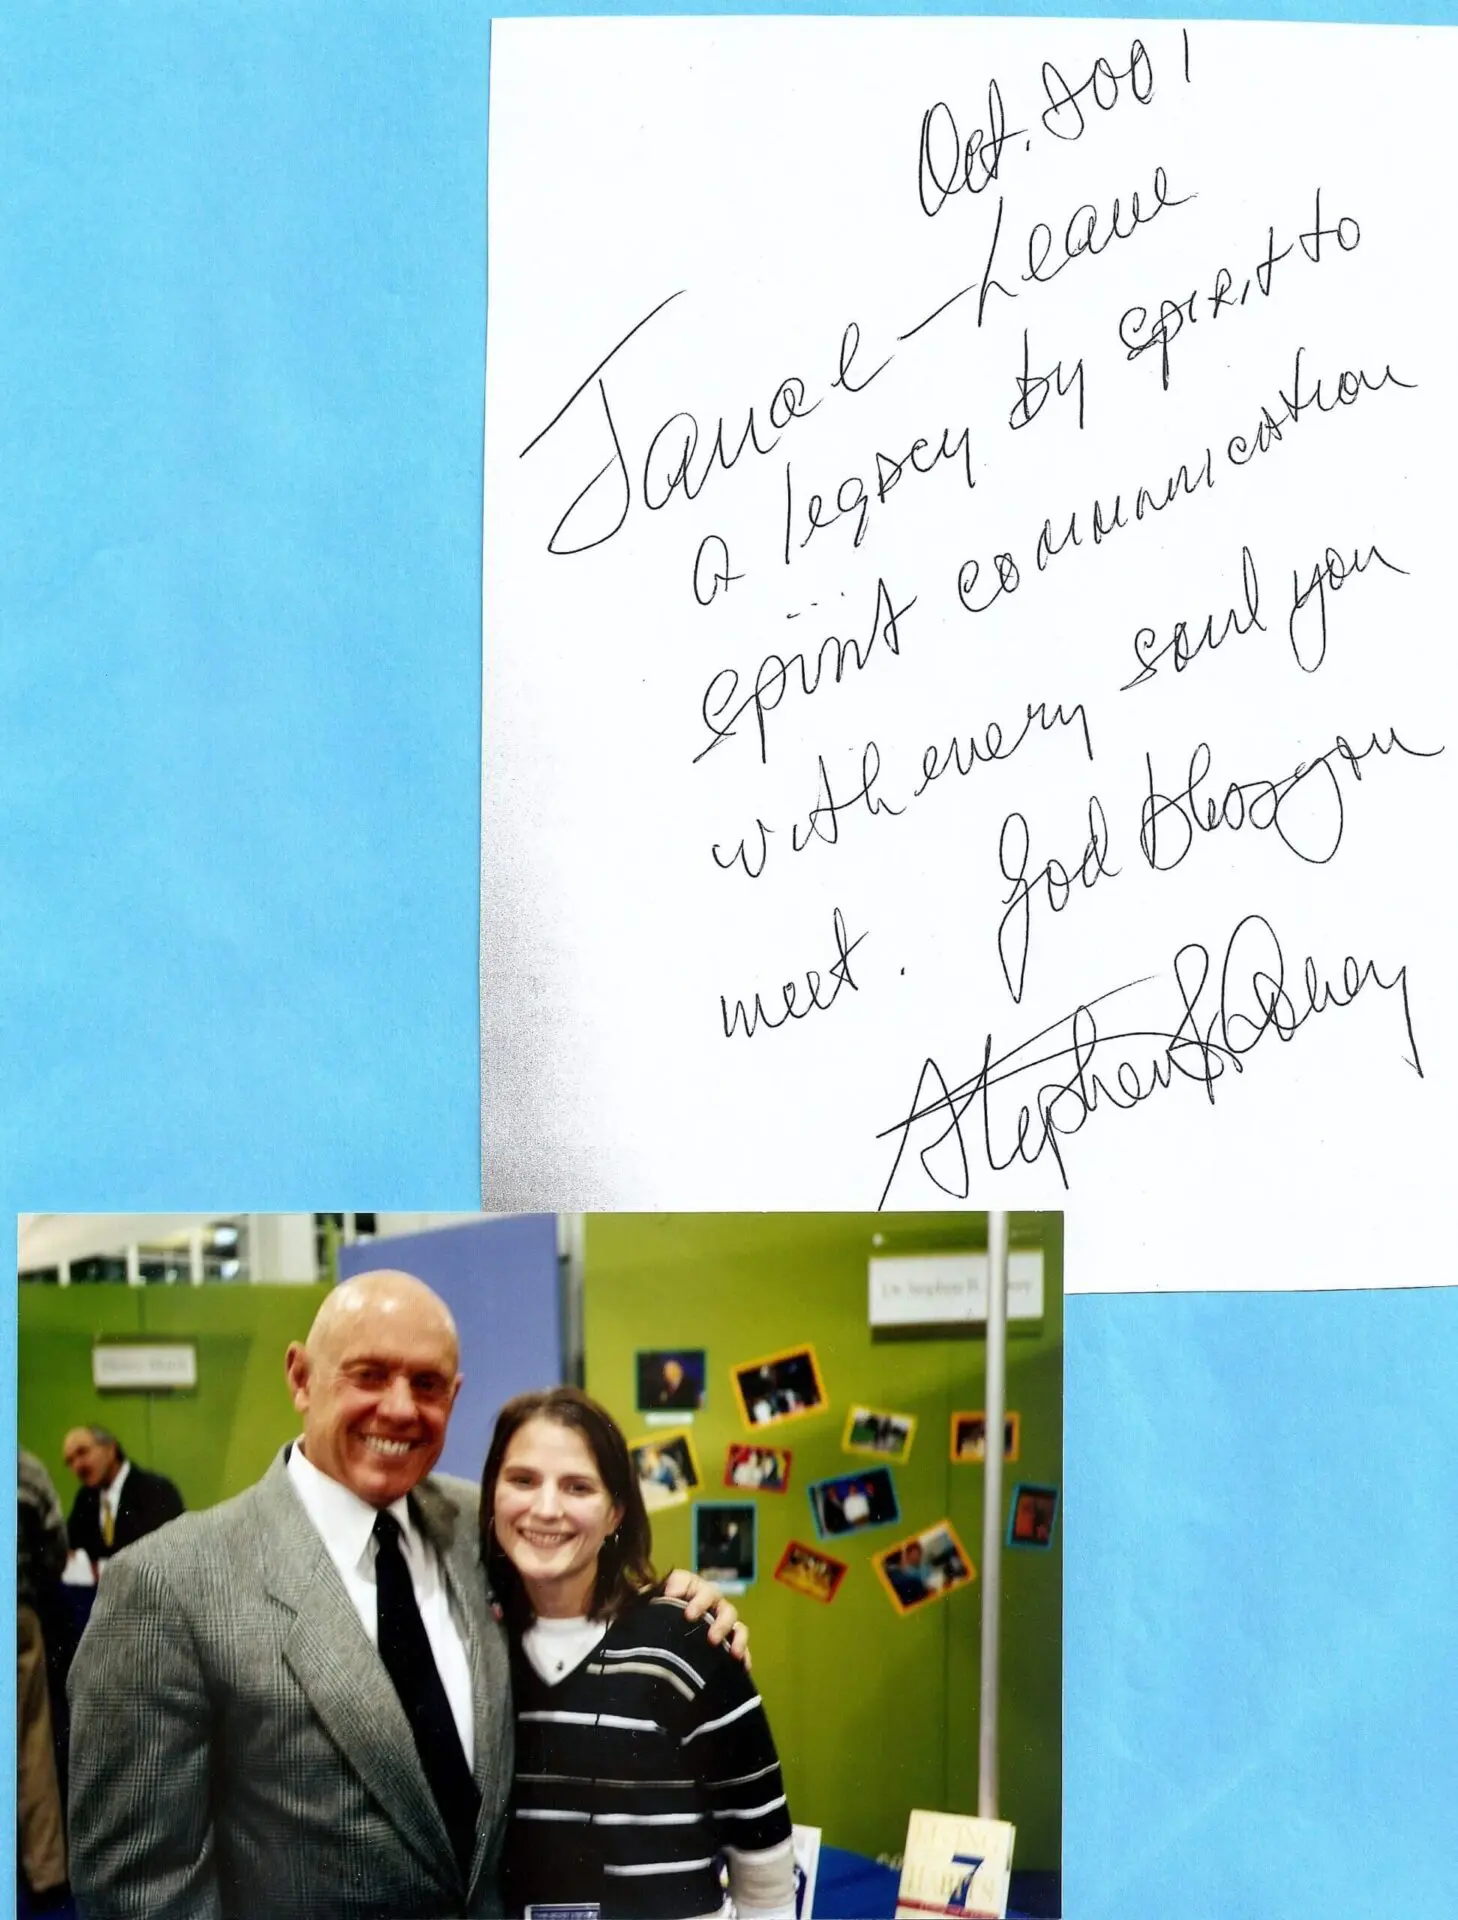 Oct. 2001
Janae - Leave
a legacy by spirit to
spirit communication
with every soul you
meet. God bless you
Stephen R. Covey
Dr. Stephen R. Covey
LIVING
7
HABITS